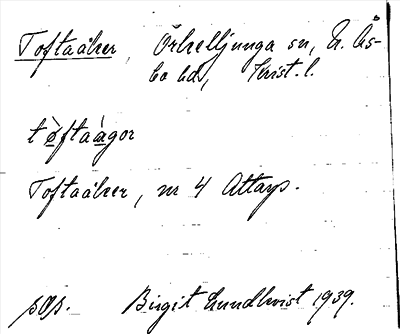 Toftaåker, Örkelljunga sn, N. Ås-
bo hd, Krist. l.
tø̀ftaàgor
Toftaåker, nr 4 Attarp.
sөp. Birgit Lundkvist 1939.